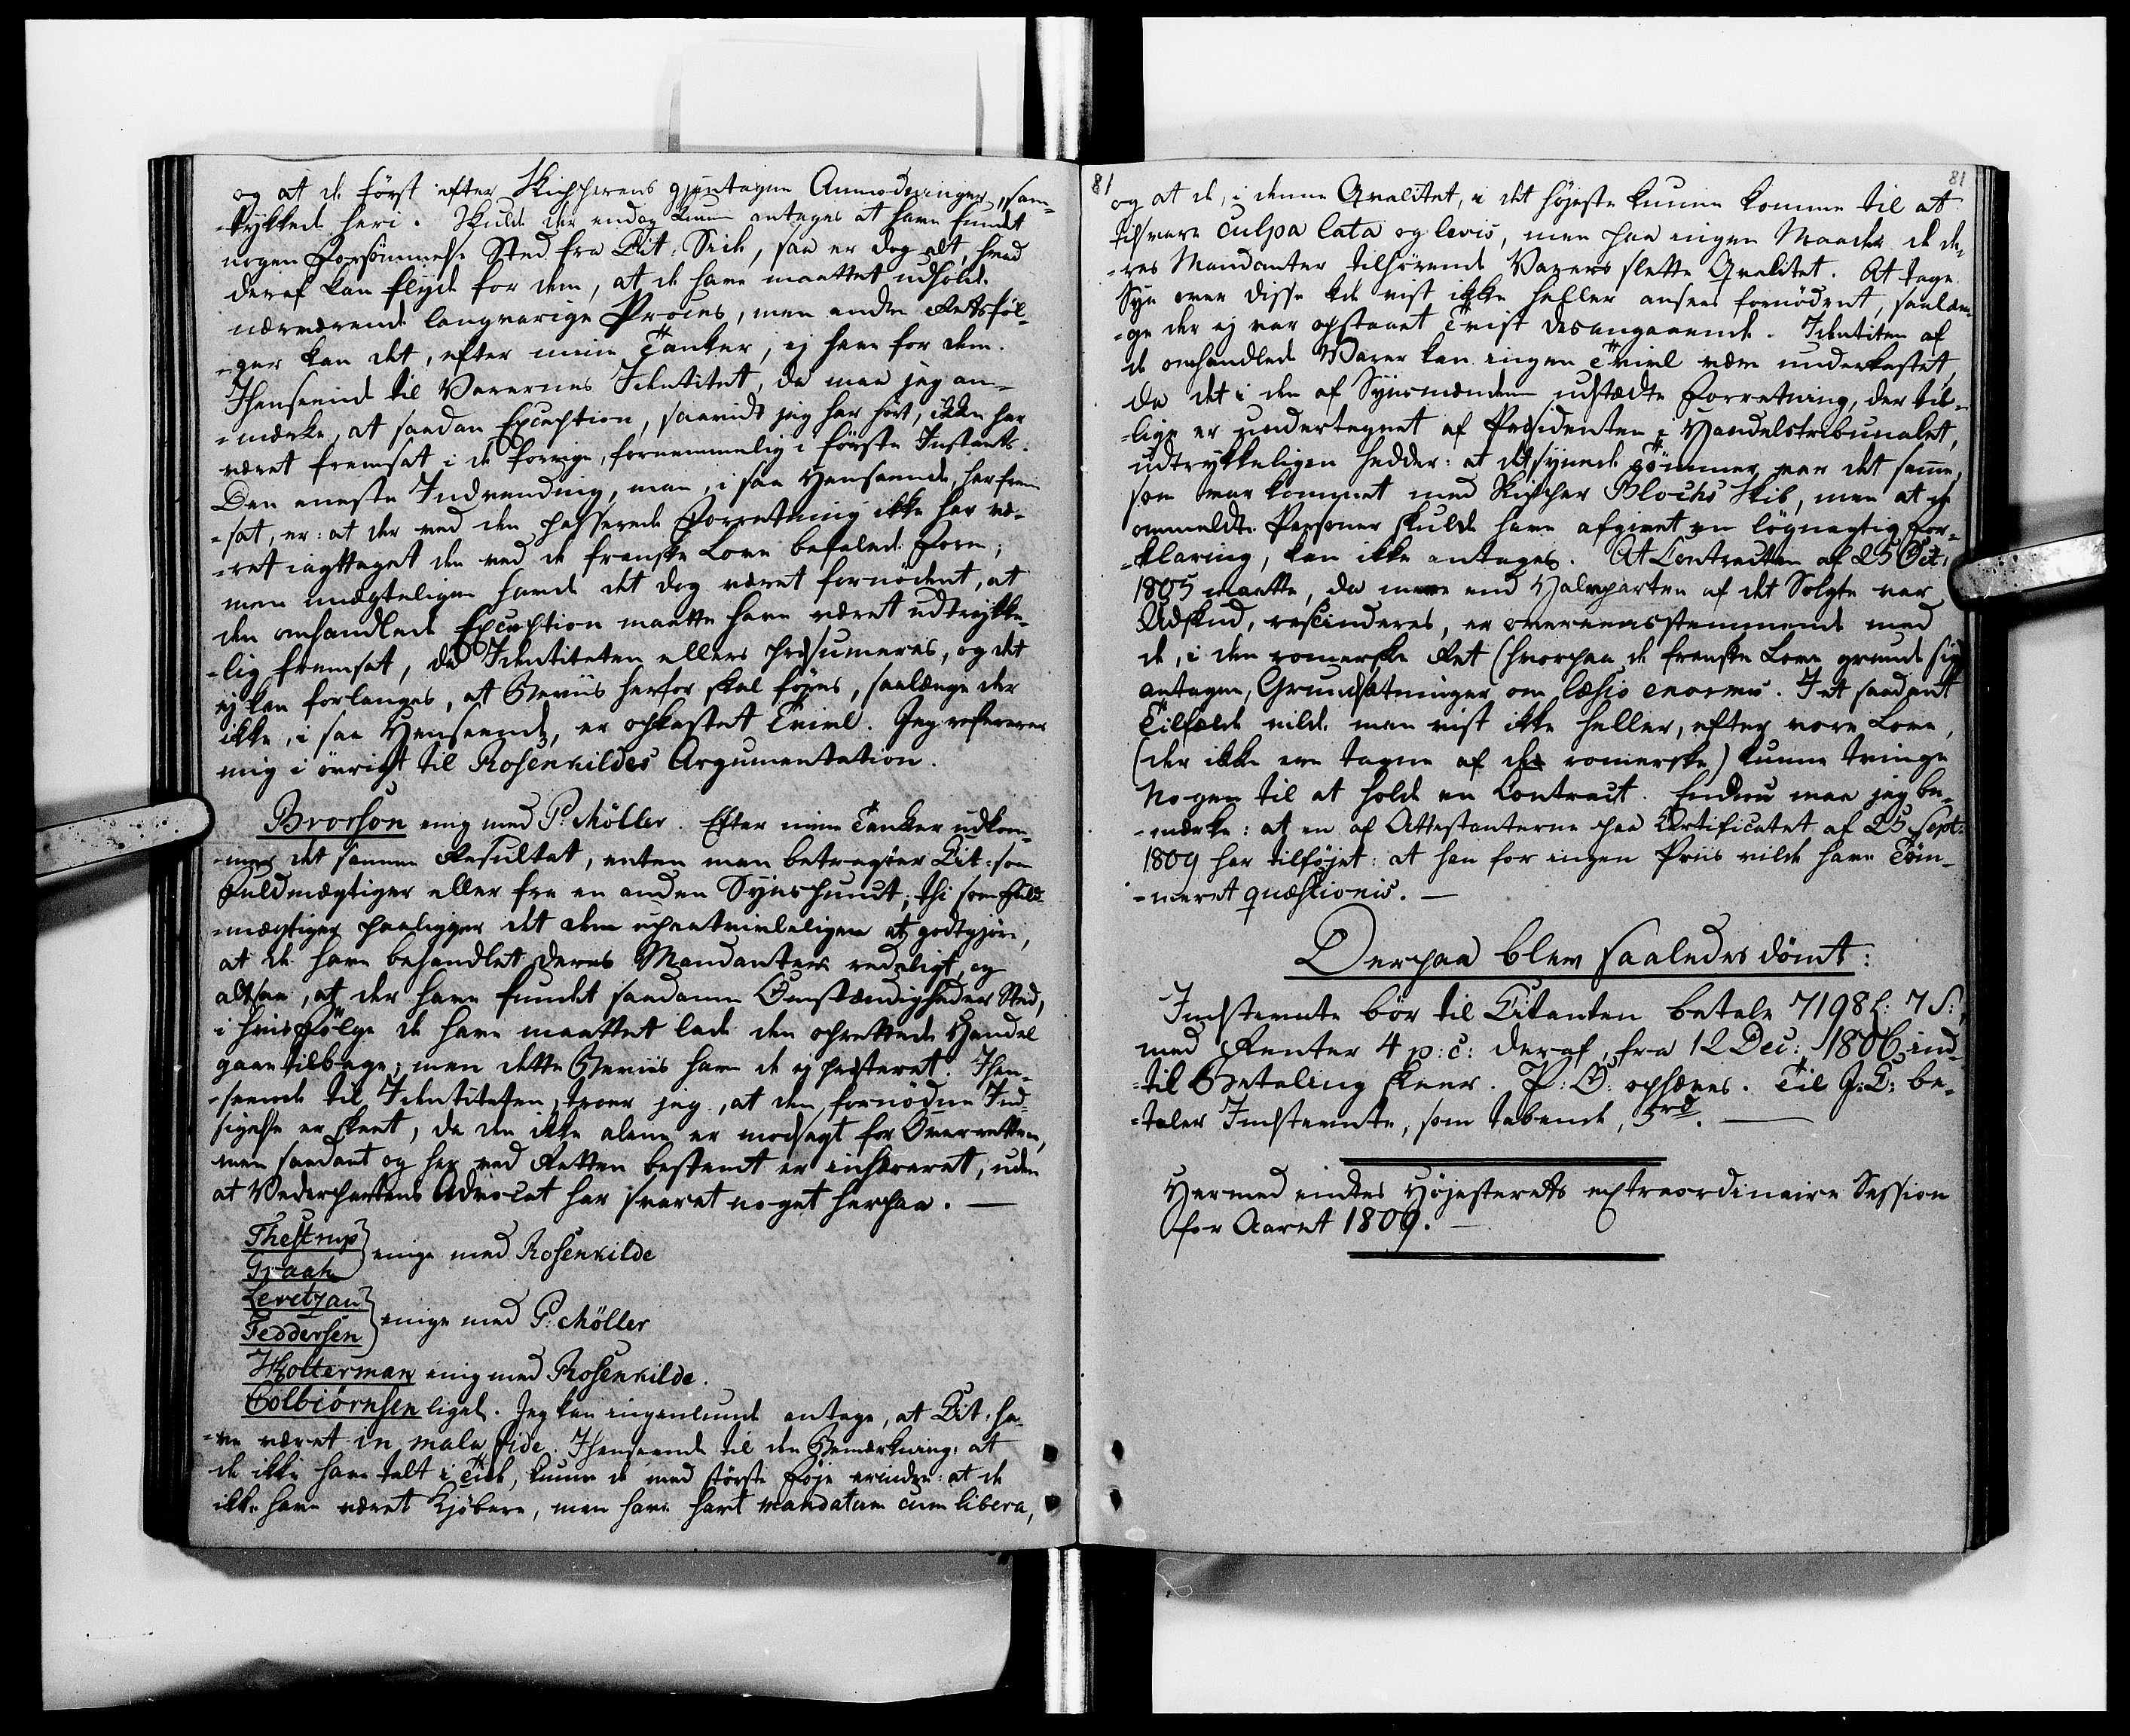 og at de först efter Skipperens gjentagne Anmodninger, sam-
-tykkede heri. Skulde der endog kunne antages at have fundet
nogen Forsömmelse Sted fra Cit: Side, saa er dog alt, hvad
deraf kan flyde for dem, at de have maattet udholde
nærværende langvarige Proces, men andre Retsföl-
-ger kan det, efter mine Tanker, ej have for dem.
Ihenseende til Varernes Identitet, da maa jeg an-
-mærke, at saadan Exception, saavidt jeg har hört, ikke har
været fremsat i de forrige, fornemmelig i förste Instants.
Den eneste Indvending, man, i saa Henseende, har frem-
-sat, er: at der ved den passerede Forretning ikke har væ-
-ret iagttaget den ved de franske Love befalede Form;
men unægteligen havde det dog været fornödent, at
den omhandlede Exception maatte have været udtrykke-
-lig fremsat, da Identiteten ellers præsumeres, og det
ej kan forlanges, at Beviis herfor skal föres, saalænge der
ikke, i saa Henseende, er opkastet Tvivl. Jeg refererer
mig i övrigt til Rosenkildes Argumentation.
Brorson enig med P: Möller. Efter mine Tanker udkom-
-mer det samme Resultat, enten man betragter Cit: som
Fuldmægtiger eller fra en anden Synspunct; thi som Fuld-
-mægtiger paaligger det dem upaatvivleligen at godtgjöre,
at de have behandlet deres Mandanter redeligt, og
altsaa, at der have fundet saadanne Omstændigheder Sted,
i hvis Fölge de have maattet lade den oprettede Handel
gaae tilbage; men dette Beviis have de ej præsteret. Ihen-
-seende til Identiteten, troer jeg, at den fornödne Ind-
sigelse er skeet, da den ikke alene er modsagt for Overretten,
men saadant og her ved Retten bestemt er inhæreret, uden
at Vederpartens Advocat har svaret noget herpaa. —
Thestrup
Graah } enige med Rosenkilde
Levetzau
Feddersen } enige med P: Möller
Kolterman enig med Rosenkilde.
Colbiörnsen ligel. Jeg kan ingenlunde antage, at Cit: ha-
-ve været in mala fide. Ihenseende til den Bemærkning: at
de ikke have talt i Tide, kunne de med störste Föje erindre: at de
ikke have været Kjöbere, men have havt mandatum cum libera,
81
81
og at de, i denne Qvalitet, i det höjeste kunne komme til at
tilsvare culpa lata og levis, men paa ingen Maade de de-
-res Mandanter tilhörende Varers slette Qvalitet. At tage
Syn over disse kde vist ikke heller ansees fornödent, saalæn-
-ge der ej var opstaaet Tvist desangaaende. Identiten af
de omhandlede Varer kan ingen Tvivl være underkastet,
da det i den af Synsmændene udstædte Forretning, der til-
-lige er undertegnet af Præsidenten i Handelstribunalet,
udtrykkeligen hedder: at det synede Tömmer var det samme,
som var kommet med Skipper Blochs Skib, men at de
ommeldte Personer skulde have afgivet en lögnagtig For-
-klaring, kan ikke antages. At Contracten af 25 Oct:
1805 maatte, da mere end Halvparten af det Solgte var
Udskud, rescinderes, er overeensstemmende med
de, i den romerske Ret (hvorpaa de franske Love grunde sig)
antagne, Grundsætninger om læsio enormis. I et saadant
Tilfælde vilde man vist ikke heller, efter vore Love,
(der ikke ere tagne af de romerske) kunne tvinge
Nogen til at holde en Contract. Endnu maa jeg be-
-mærke: at en af Attestanterne paa Certificatet af 25 Sept:
1809 har tilföjet: at han for ingen Priis vilde have Töm-
-meret quæstionis. —
Derpaa blev saaledes dömt:
Indstevnte bör til Citanten betale 7198 £: 7 S:,
med Renter 4 p: c: deraf, fra 12 Dec: 1806 ind-
-til Betaling skeer. P: O: ophæves. Til J: C: be-
-taler Indstevnte, som tabende, 5 rd. —
Hermed endtes Höjesterets extraordinaire Session
for Aaret 1809. —